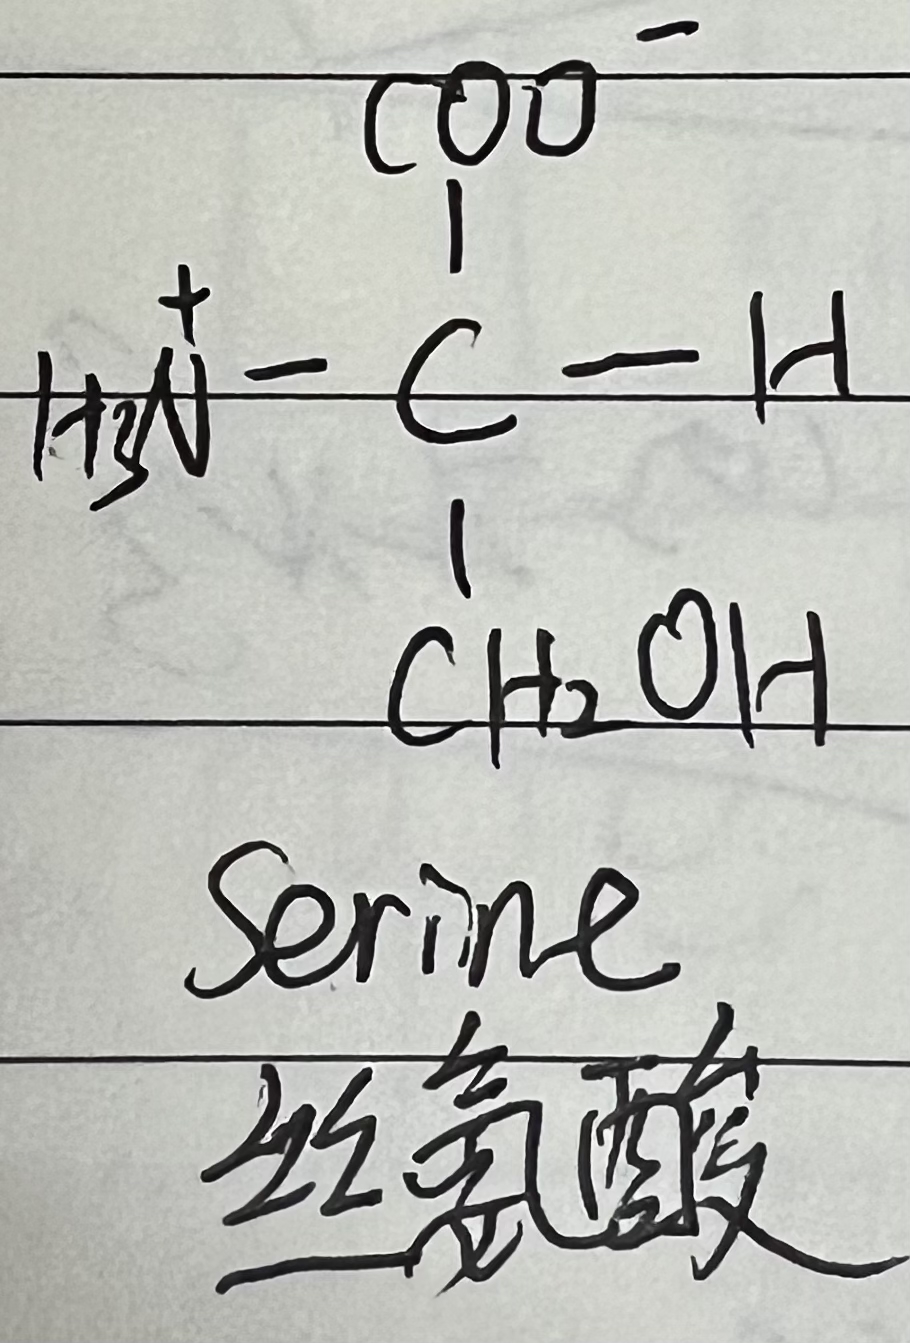 COO⁻
|
H₃N⁺ - C — H
|
CH₂OH
Serine
丝氨酸